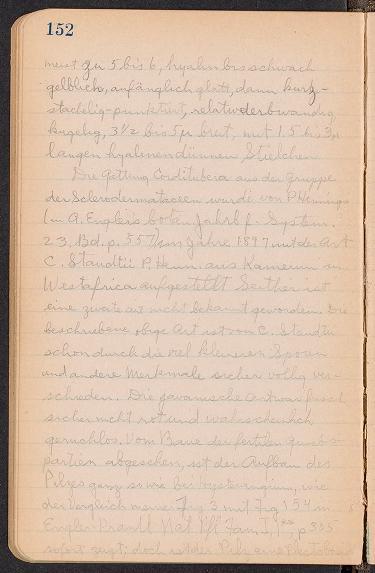 152
meist zu 5 bis 6, hyalin bis schwach
gelblich, anfänglich glatt, dann kurz-
stachelig-punktirt, relativ derbwandig
kugelig, 3 1/2 bis 5μ breit, mit 1.5 bis 3μ
langen hyalinen dünnen Stielchen
Die Gattung Corditubera aus der Gruppe
der Sclerodermataceen wurde von P. Hennings
(in A. Englers botan. Jahrb. f. System.
23. Bd. p. 557) im Jahre 1897 mit der Art
C. Staudtii P. Henn. aus Kamerun in
Westafrica aufgestellt Seither ist
eine zweite art nicht bekannt geworden. Die
beschriebene obige Art ist von C. Staudtii
schon durch die viel kleineren Sporen
und andere Merkmale sicher völlig ver-
schieden. Die javanische Art war frisch
sicher nicht rot und wahrscheinlich
geruchlos. Vom Baue der fertilen
partien abgesehen, ist der Aufbau des
Pilzes ganz so wie bei Hysterangium, wie
der Vergleich meiner Fig 3 mit Fig 154 in
Engler Prantl Nat. Pfl. Fam. I, 1**, p 305
sofort zeigt; doch ist der Pilz eine Plectobasi